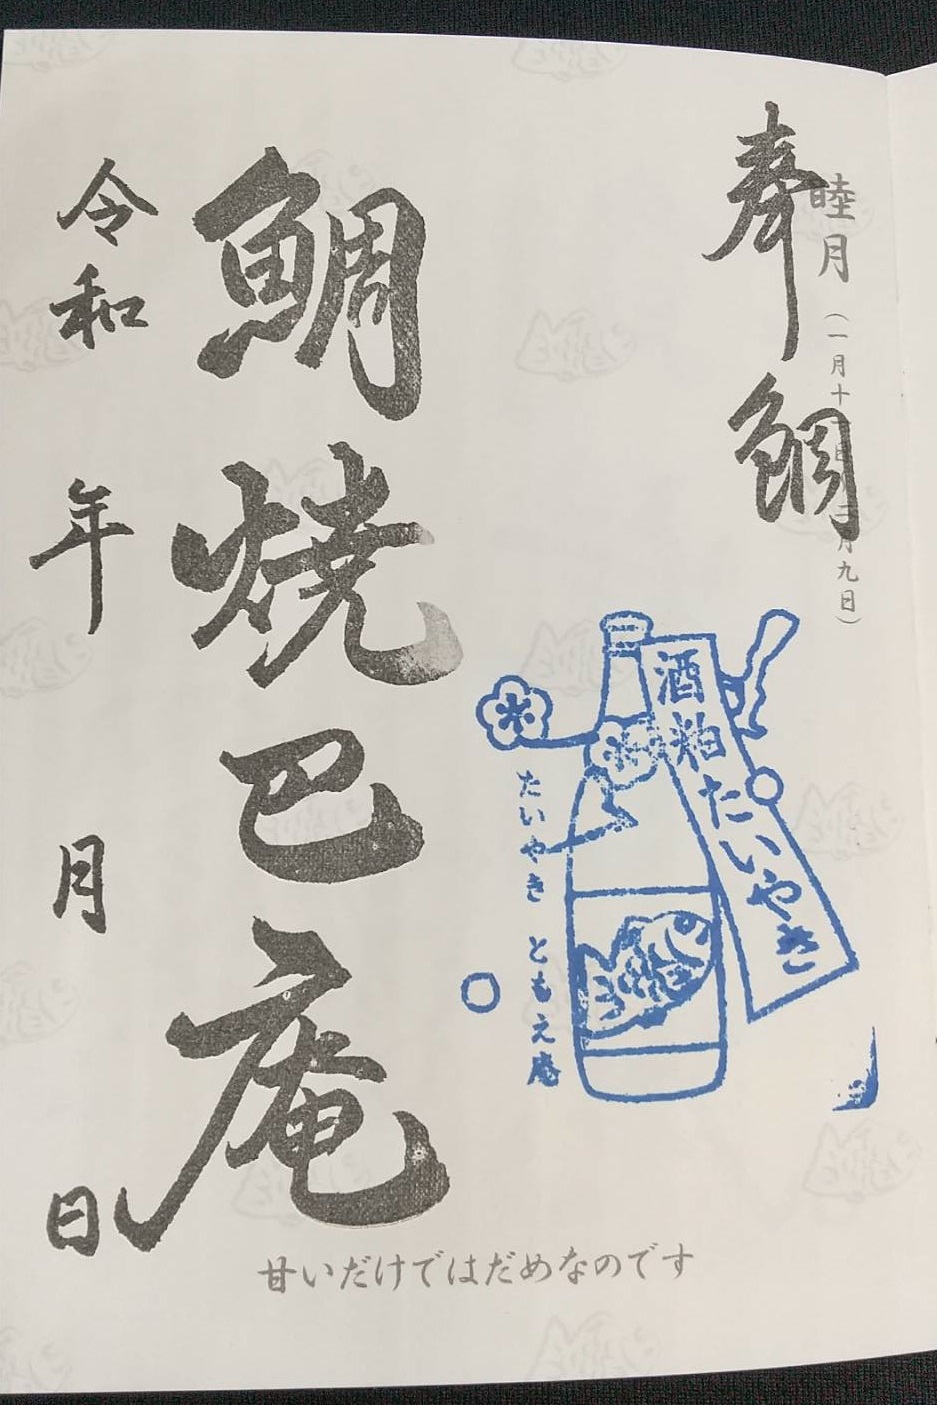 睦月
(一月十二日〜二月九日)
奉鯛
酒粕たいやき
たいやき ともえ庵
鯛焼巴庵
令和 年 月 日
甘いだけではだめなのです